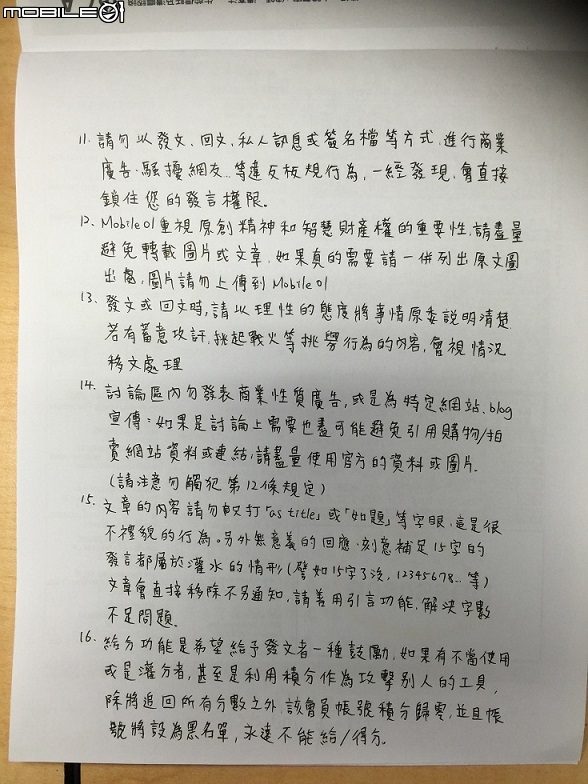 MOBILE01
11. 請勿以發文、回文、私人訊息或簽名檔等方式,進行商業
廣告、騷擾網友…等違反板規行為,一經發現,會直接
鎖住您的發言權限。
12. Mobile01重視原創精神和智慧財產權的重要性,請盡量
避免轉載圖片或文章,如果真的需要請一併列出原文圖
出處,圖片請勿上傳到Mobile01
13. 發文或回文時,請以理性的態度將事情原委說明清楚
若有蓄意攻訐,挑起戰火等挑釁行為的內容,會視情況
移文處理
14. 討論區內勿發表商業性質廣告,或是為特定網站、blog
宣傳;如果是討論上需要也盡可能避免引用購物/拍
賣網站資料或連結,請盡量使用官方的資料或圖片.
(請注意勿觸犯第12條規定)
15. 文章的內容請勿鍵打「as title」或「如題」等字眼,這是很
不禮貌的行為。另外無意義的回應、刻意補足15字的
發言都屬於灌水的情形(譬如15字了沒, 12345678…等)
文章會直接移除不另通知,請善用引言功能,解決字數
不足問題.
16. 給分功能是希望給予發文者一種鼓勵,如果有不當使用
或是灌分者,甚至是利用積分作為攻擊別人的工具,
除將追回所有分數之外,該會員帳號積分歸零,並且帳
號將設為黑名單,永遠不能給/得分。